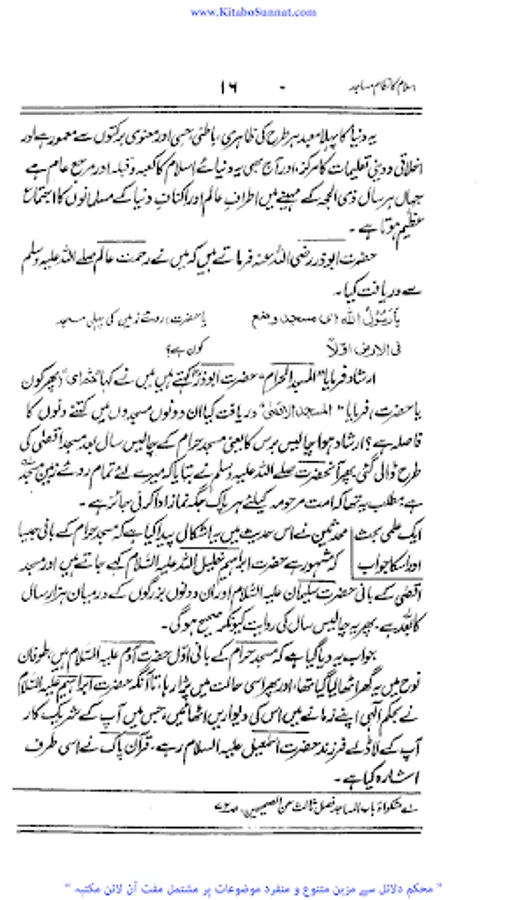 www.KitaboSunnat.com
اسلام کا نظام مساجد - ۱۶
یہ دنیا کا پہلا معبد ہر طرح کی ظاہری، باطنی، حسی اور معنوی برکتوں سے معمور ہے اور
اخلاقی و دینی تعلیمات کا مرکز، اور آج بھی یہ دنیائے اسلام کا کعبہ و قبلہ اور مرجع عام ہے
جہاں ہر سال ذی الحجہ کے مہینے میں اطرافِ عالم اور اکنافِ دنیا کے مسلمانوں کا اجتماع
عظیم ہوتا ہے ۔
حضرت ابوذر رضی اللہ عنہ فرماتے ہیں کہ میں نے رحمت عالم صلے اللہ علیہ وسلم
سے دریافت کیا۔
یا رسول اللہ ای مسجد وضع یا حضرت، روئے زمین کی پہلی مسجد
فی الارض اولاً کون ہے؟
ارشاد فرمایا "المسجد الحرام" حضرت ابوذرؓ کہتے ہیں میں نے کہا "ثم ای" (پھر کون
یا حضرت) فرمایا "المسجد الاقصیٰ" دریافت کیا ان دونوں مسجدوں میں کتنے دنوں کا
فاصلہ ہے؟ ارشاد ہوا چالیس برس کا یعنی مسجد حرام کے چالیس سال بعد مسجد اقصیٰ کی
طرح ڈالی گئی پھر آنحضرت صلے اللہ علیہ وسلم نے بتایا کہ میرے لئے تمام روئے زمین مسجد
ہے مطلب یہ تھا کہ امت مرحومہ کیلئے ہر پاک جگہ نماز ادا کرنی جائز ہے ۔
ایک علمی بحث محدثین نے اس حدیث میں یہ اشکال پیدا کیا ہے کہ مسجد حرام کے بانی جیسا
اور اسکا جواب کہ مشہور ہے حضرت ابراہیم خلیل اللہ علیہ السلام کہے جاتے ہیں اور مسجد
اقصیٰ کے بانی حضرت سلیمان علیہ السلام اور ان دونوں بزرگوں کے درمیان ہزار سال
کا بعد ہے، پھر یہ چالیس سال کی روایت کیونکر صحیح ہوگی۔
جواب یہ دیا گیا ہے کہ مسجد حرام کے بانی اوّل حضرت آدم علیہ السلام ہیں، طوفان
نوح میں یہ گھر اٹھا لیا گیا تھا، اور پھر اسی حالت میں پڑا رہا، تا آنکہ حضرت ابراہیم علیہ السلام
نے بحکم الٰہی اپنے زمانے میں اس کی دیواریں اٹھائیں، جس میں آپ کے شریک کار
آپ کے لاڈلے فرزند حضرت اسمٰعیل علیہ السلام رہے، قرآن پاک نے اسی طرف
اشارہ کیا ہے۔
لے مشکوٰۃ باب المساجد فصل ثالث عن الصحیحین، ص۷۲
" محکم دلائل سے مزین متنوع و منفرد موضوعات پر مشتمل مفت آن لائن مکتبہ "